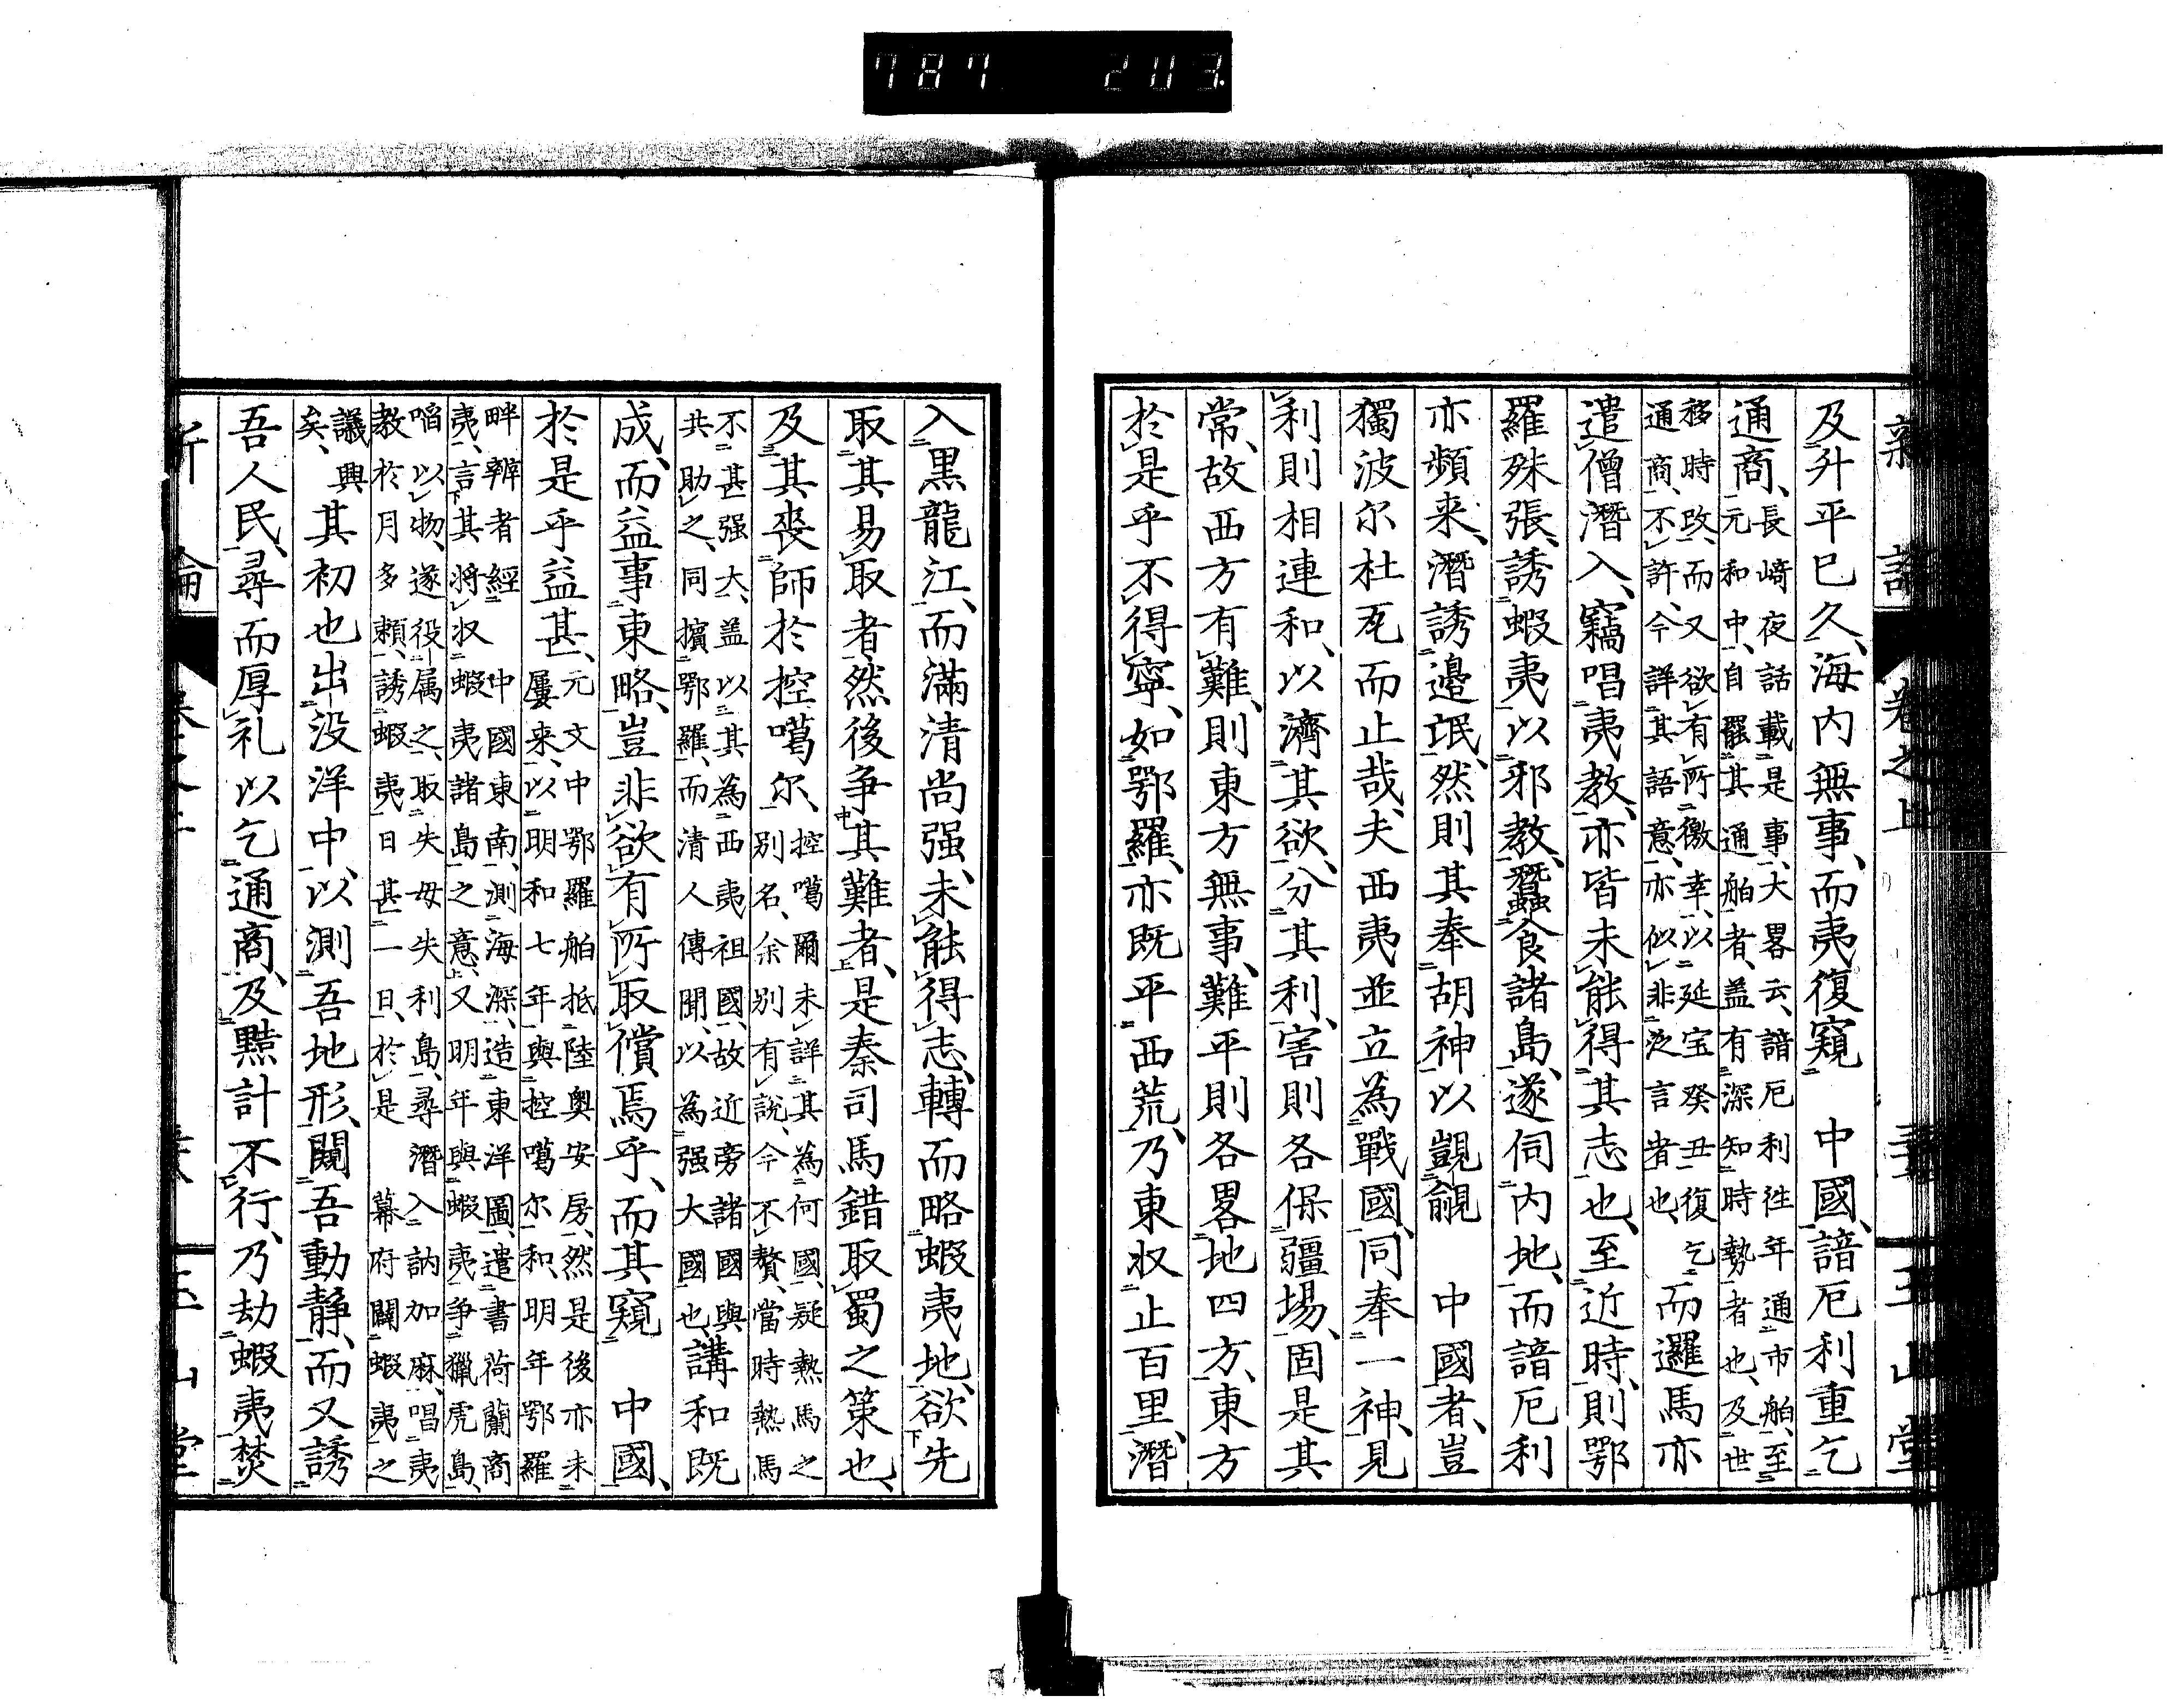 787 203
新論 卷之上 玉山堂
及升平已久、海内無事、而夷復窺　中國、諳厄利重乞
通商、長﨑夜話載是事、大畧云、諳厄利往年通市舶、至
元和中、自罷其通舶者、盖有深知時勢者也、及世
移時改、而又欲有所徼幸、以延宝癸丑復乞
通商、不許、今詳其語意、亦似非泛言者也、而邏馬亦
遣僧潛入、竊唱夷教、亦皆未能得其志也、至近時、則鄂
羅殊張、誘蝦夷、以邪教、蠶食諸島、遂伺内地、而諳厄利
亦頻来、潛誘邉氓、然則其奉胡神以覬覦　中國者、豈
獨波尔杜瓦而止哉、夫西夷並立為戰國、同奉一神、見
利則相連和、以濟其欲、分其利、害則各保疆場、固是其
常、故西方有難、則東方無事、難平則各畧地四方、東方
於是乎不得寧、如鄂羅、亦既平西荒、乃東収止百里、潛
入黒龍江、而滿清尚强、未能得志、轉而略蝦夷地、欲先
取其易取者、然後争其難者、是秦司馬錯取蜀之策也、
及其喪師於控噶尔、控噶爾未詳其為何國、疑熱馬之
別名、余別有說、今不贅、當時熱馬
不甚强大、盖以其為西夷祖國、故近旁諸國與
共助之、同擯鄂羅、而清人傳聞、以為强大國也、講和既
成、而益事東略、豈非欲有所取償焉乎、而其窺　中國、
於是乎益甚、元文中鄂羅舶抵陸奥安房、然是後亦未
屢来、以明和七年與控噶尔和、明年鄂羅
畔辨者經　中國東南、測海深、造東洋圖、遣書荷蘭商
夷、言其将収蝦夷諸島之意、又明年與蝦夷争獵虎島、
啗以物、遂役属之、取失毋失利島、尋潛入訥加麻、唱夷
教於月多賴、誘蝦夷、日甚一日、於是　幕府闢蝦夷之
議興
矣、其初也出没洋中、以測吾地形、闚吾動静、而又誘
吾人民、尋而厚礼以乞通商、及黠計不行、乃劫蝦夷、焚